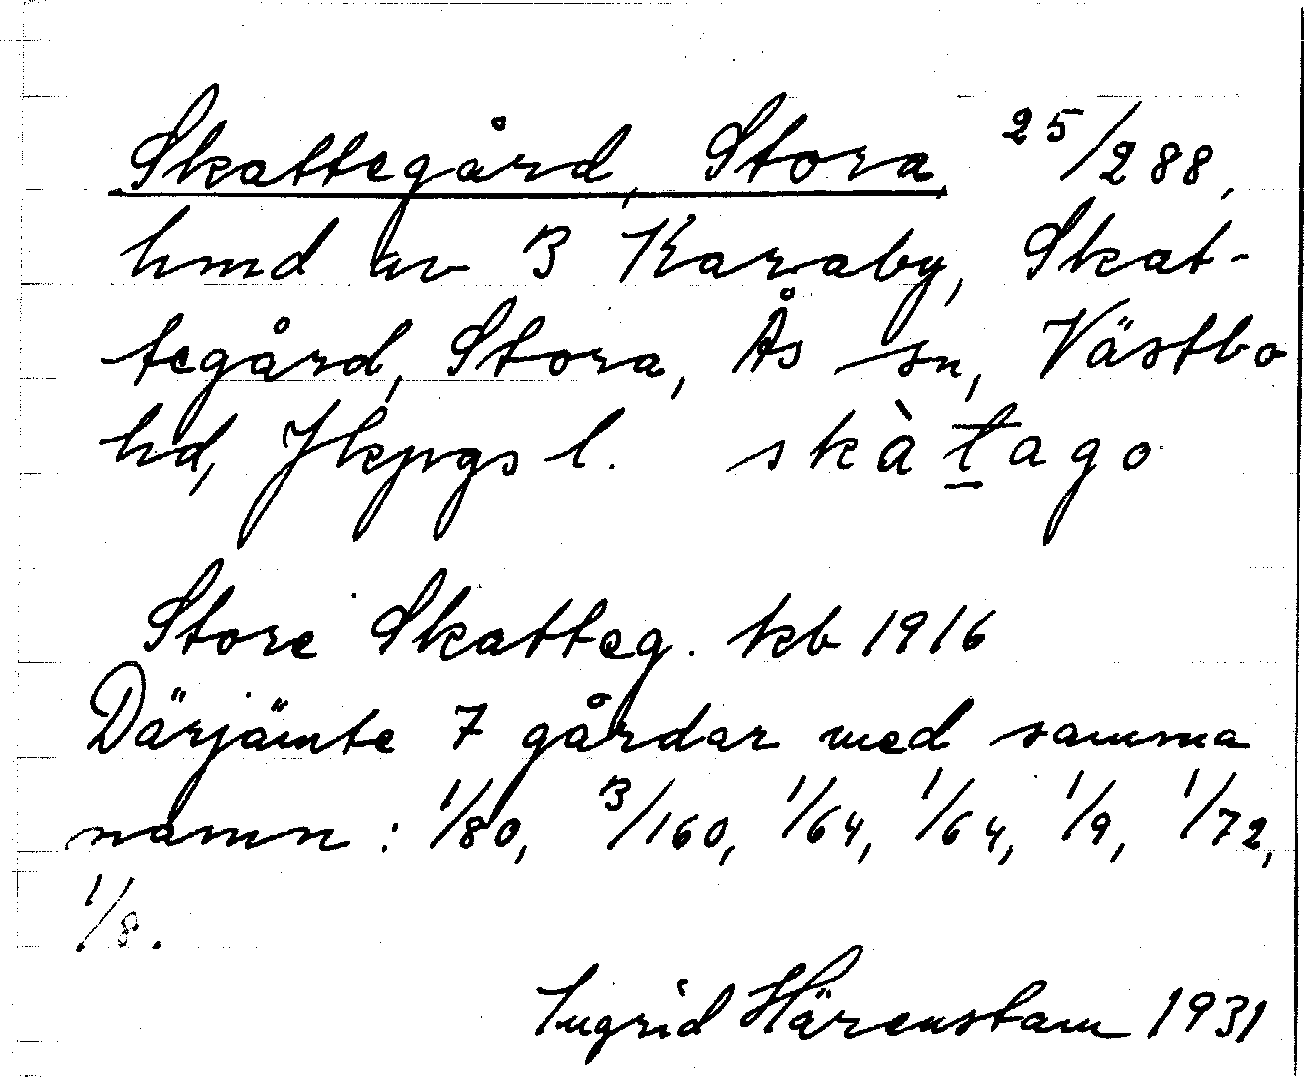 Skattegård, Stora 25/288,
hmd av 3 Karaby, Skat-
tegård, Stora, Ås sn, Västbo
hd, Jkpgs l. skàt̠ago
Store Skatteg. kb 1916
Därjämte 7 gårdar med samma
namn: 1/80, 3/160, 1/64, 1/64, 1/9, 1/72,
1/8.
Ingrid Härenstam 1931